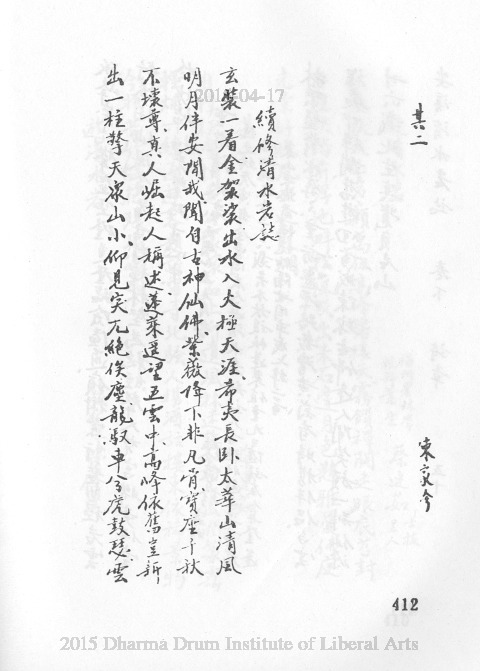 其二
東家兮
續修清水岩誌
玄裝一着金袈裟出水入火極天涯希夷長卧太華山清風
明月伴安閒我聞自古神仙佛紫薇降下非凡胄寶座千秋
不壞尊真人崛起人稱述蓬萊遥望五雲中高峰依舊豈新
出一柱擎天眾山小仰見突兀絕俟塵龍馭車兮虎鼓瑟雲
2015-04-17
412
2015 Dharma Drum Institute of Liberal Arts